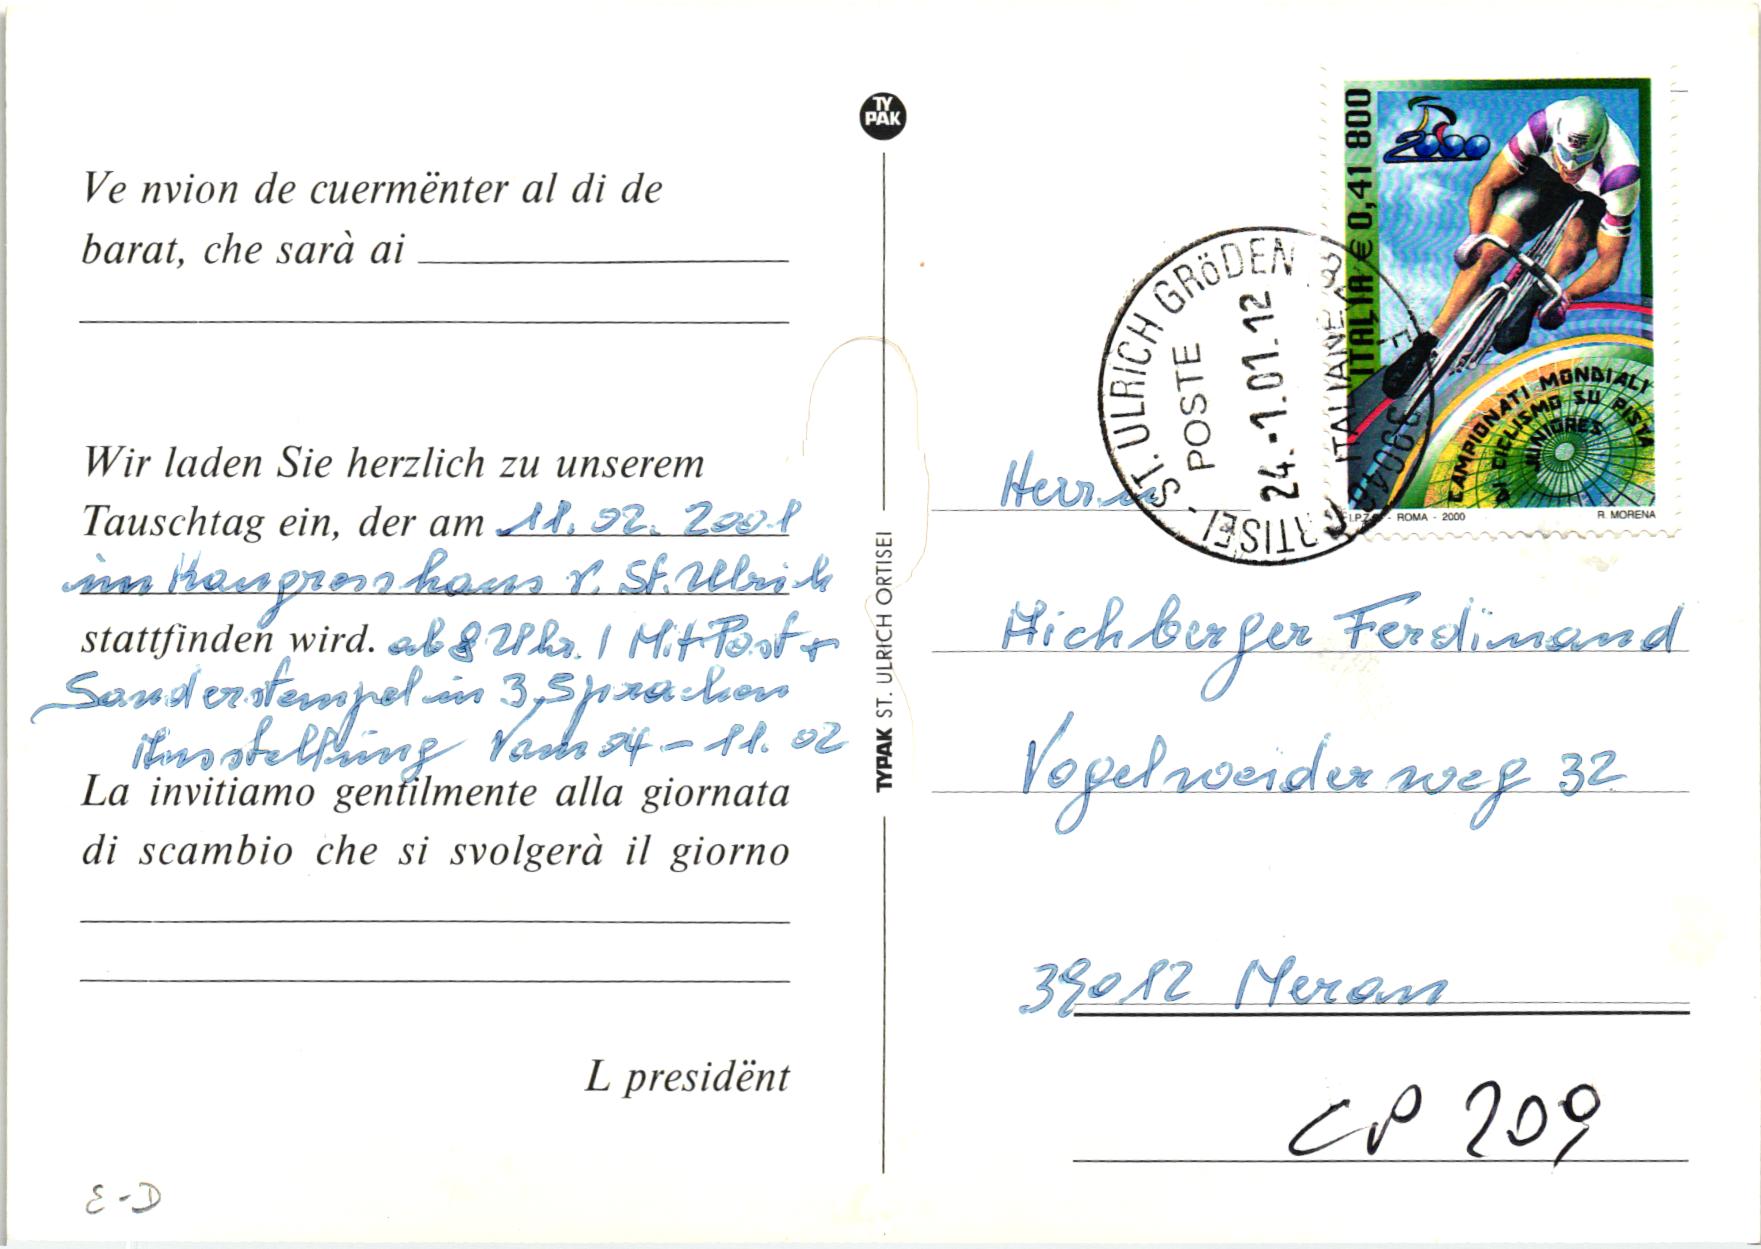 Ve nvion de cuermënter al di de
barat, che sarà ai
Wir laden Sie herzlich zu unserem
Tauschtag ein, der am 11.02.2001
im Kongresshaus v. St. Ulrich
stattfinden wird. ab 8 Uhr. / Mit Post +
Sonderstempel in 3 Sprachen
Ausstellung vom 04 - 11.02
La invitiamo gentilmente alla giornata
di scambio che si svolgerà il giorno
L presidënt
E-D
TY
PAK
TYPAK ST. ULRICH ORTISEI
ITALIA € 0,41 800
2000
CAMPIONATI MONDIALI
DI CICLISMO SU PISTA
JUNIORES
I.P.Z.S. - ROMA - 2000
R. MORENA
ST. ULRICH GRöDEN
POSTE ITALIANE
24.-1.01.12
39046 ORTISEI -
Herrn
Michberger Ferdinand
Vogelweiderweg 32
39012 Meran
CP 209